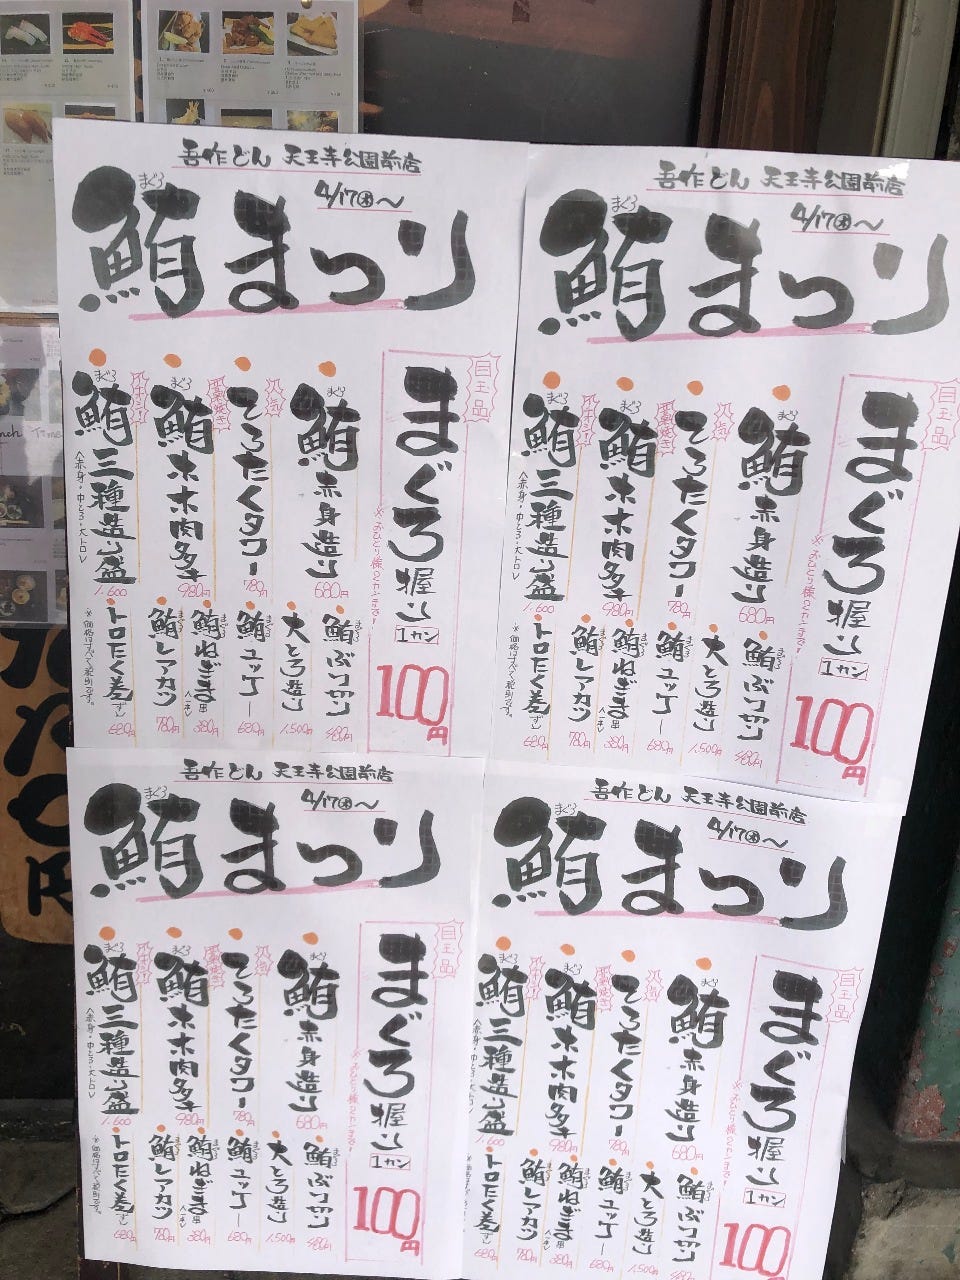 吾作どん 天王寺公園前店
4/17㊍〜
まぐろ
鮪まつり
目玉品
まぐろ握り 1カン
※おひとり様2カンまで!
100円
まぐろ
鮪赤身造り
680円
人気
とろたくタワー
780円
まぐろ
鮪ホホ肉
980円
まぐろ
鮪三種造り盛
<赤身・中とろ・大トロ>
1,600
まぐろ
鮪ぶつ切り
480円
大とろ造り
1,500円
まぐろ
鮪ユッケー
680円
まぐろ
鮪ねぎま串
380円
まぐろ
鮪レアカツ
780円
トロたく巻ずし
680円
※価格はすべて税別です。
吾作どん 天王寺公園前店
4/17㊍〜
まぐろ
鮪まつり
目玉品
まぐろ握り 1カン
※おひとり様2カンまで!
100円
まぐろ
鮪赤身造り
680円
人気
とろたくタワー
780円
まぐろ
鮪ホホ肉
980円
まぐろ
鮪三種造り盛
<赤身・中とろ・大トロ>
1,600
まぐろ
鮪ぶつ切り
480円
大とろ造り
1,500円
まぐろ
鮪ユッケー
680円
まぐろ
鮪ねぎま串
380円
まぐろ
鮪レアカツ
780円
トロたく巻ずし
680円
※価格はすべて税別です。
吾作どん 天王寺公園前店
4/17㊍〜
まぐろ
鮪まつり
目玉品
まぐろ握り 1カン
※おひとり様2カンまで!
100円
まぐろ
鮪赤身造り
680円
人気
とろたくタワー
780円
まぐろ
鮪ホホ肉
980円
まぐろ
鮪三種造り盛
<赤身・中とろ・大トロ>
1,600
まぐろ
鮪ぶつ切り
480円
大とろ造り
1,500円
まぐろ
鮪ユッケー
680円
まぐろ
鮪ねぎま串
380円
まぐろ
鮪レアカツ
780円
トロたく巻ずし
680円
※価格はすべて税別です。
吾作どん 天王寺公園前店
4/17㊍〜
まぐろ
鮪まつり
目玉品
まぐろ握り 1カン
※おひとり様2カンまで!
100円
まぐろ
鮪赤身造り
680円
人気
とろたくタワー
780円
まぐろ
鮪ホホ肉
980円
まぐろ
鮪三種造り盛
<赤身・中とろ・大トロ>
1,600
まぐろ
鮪ぶつ切り
480円
大とろ造り
1,500円
まぐろ
鮪ユッケー
680円
まぐろ
鮪ねぎま串
380円
まぐろ
鮪レアカツ
780円
トロたく巻ずし
680円